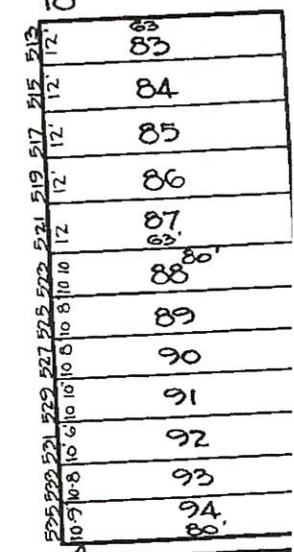 63
513 12' 83
515 12' 84
517 12' 85
519 12' 86
521 12 87
63'
80'
523 10 10 88
525 10 8 89
527 10 8 90
529 10 10" 91
531 10' 6" 92
533 10-8 93
535 10-9 94
80'